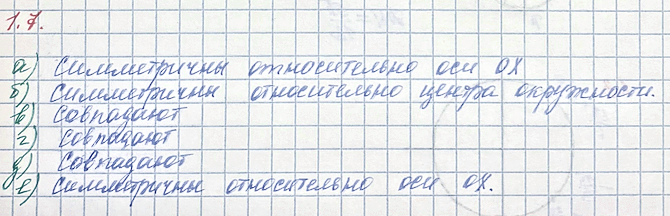 1.7.
а) Симметричны относительно оси ОХ
б) Симметричны относительно центра окружности.
в) Совпадают
г) Совпадают
д) Совпадают
е) Симметричны относительно оси ОХ.